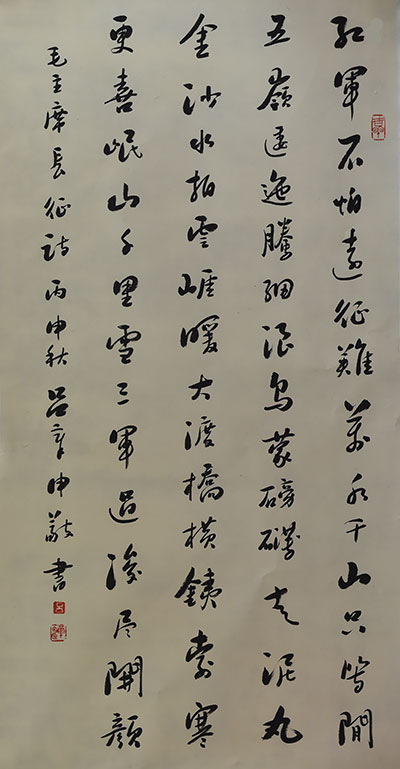 紅軍不怕遠征難萬水千山只等閒
五嶺逶迤騰細浪烏蒙磅礴走泥丸
金沙水拍雲崕暖大渡橋橫鐵索寒
更喜岷山千里雪三軍過後尽開顏
毛主席長征詩丙申秋呂章申敬書